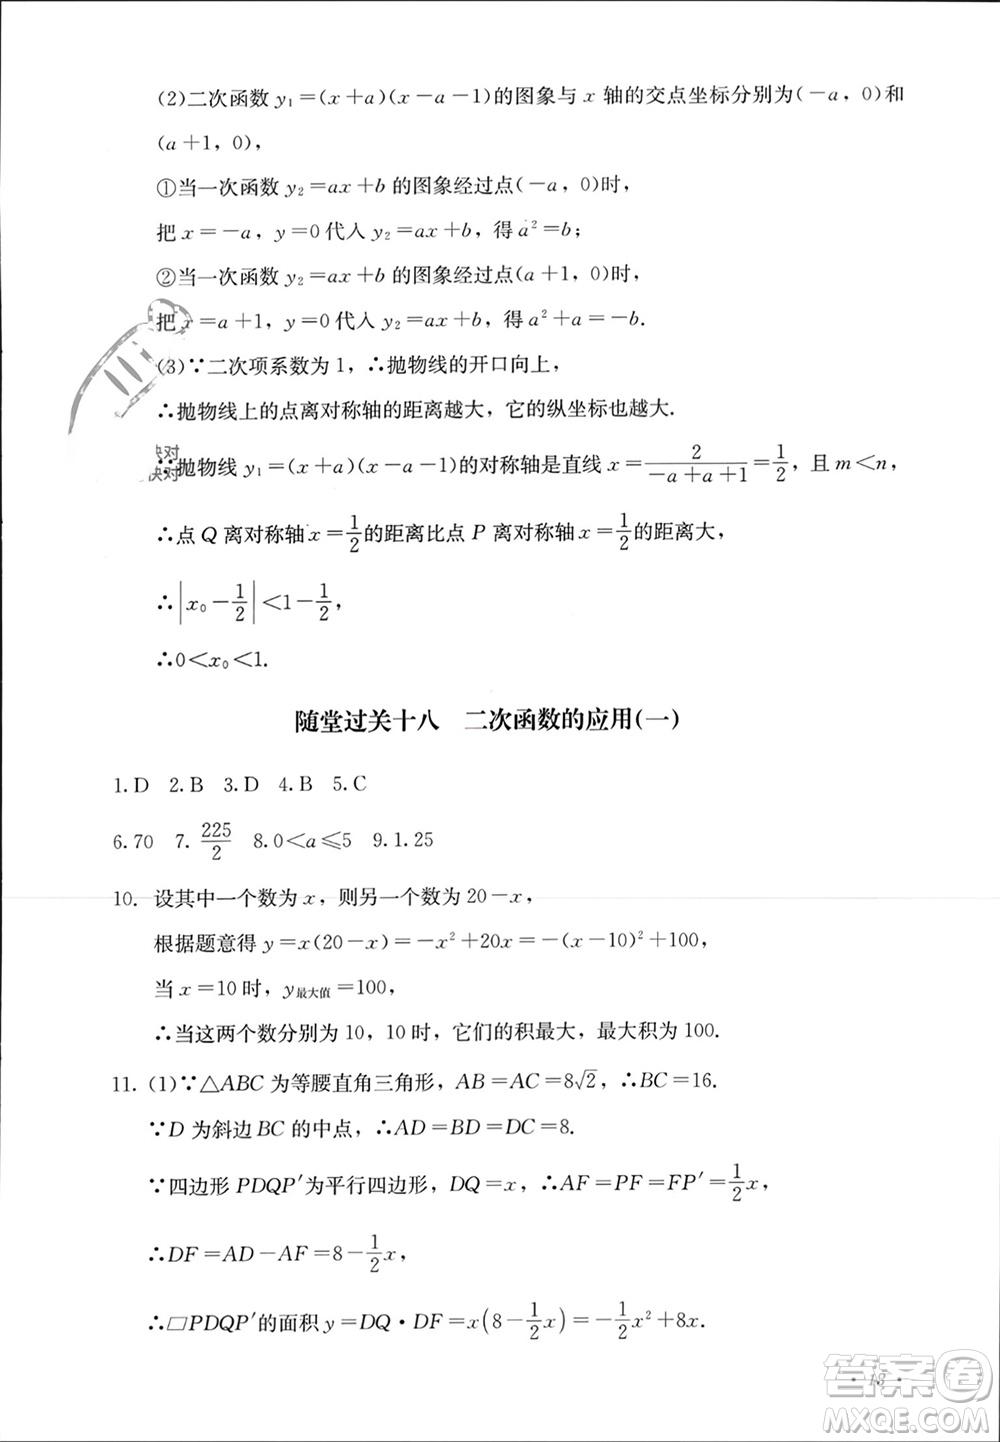 (2)二次函数 y₁=(x+a)(x-a-1)的图象与 x 轴的交点坐标分别为(-a，0)和
(a+1，0)，
①当一次函数 y₂=ax+b 的图象经过点(-a，0)时，
把 x=-a，y=0代入 y₂=ax+b，得 a²=b；
②当一次函数 y₂=ax+b 的图象经过点(a+1，0)时，
把 x=a+1，y=0代入 y₂=ax+b，得 a²+a=-b.
(3)∵二次项系数为1，∴抛物线的开口向上，
∴抛物线上的点离对称轴的距离越大，它的纵坐标也越大.
∵抛物线 y₁=(x+a)(x-a-1)的对称轴是直线 x=2/(-a+a+1)=1/2，且 m<n，
∴点 Q 离对称轴 x=1/2的距离比点 P 离对称轴 x=1/2的距离大，
∴|x₀-1/2|<1-1/2，
∴0<x₀<1.
随堂过关十八 二次函数的应用(一)
1.D 2.B 3.D 4.B 5.C
6.70 7. 225/2 8.0<a≤5 9.1.25
10. 设其中一个数为 x，则另一个数为20-x，
根据题意得 y=x(20-x)=-x²+20x=-(x-10)²+100，
当 x=10时，y最大值=100，
∴当这两个数分别为10，10时，它们的积最大，最大积为100.
11. (1)∵△ABC 为等腰直角三角形，AB=AC=8√2，∴BC=16.
∵D 为斜边 BC 的中点，∴AD=BD=DC=8.
∵四边形 PDQP′为平行四边形，DQ=x，∴AF=PF=FP′=1/2x，
∴DF=AD-AF=8-1/2x，
∴□PDQP′的面积 y=DQ·DF=x(8-1/2x)=-1/2x²+8x.
·13·
答案卷
MXQE.COM